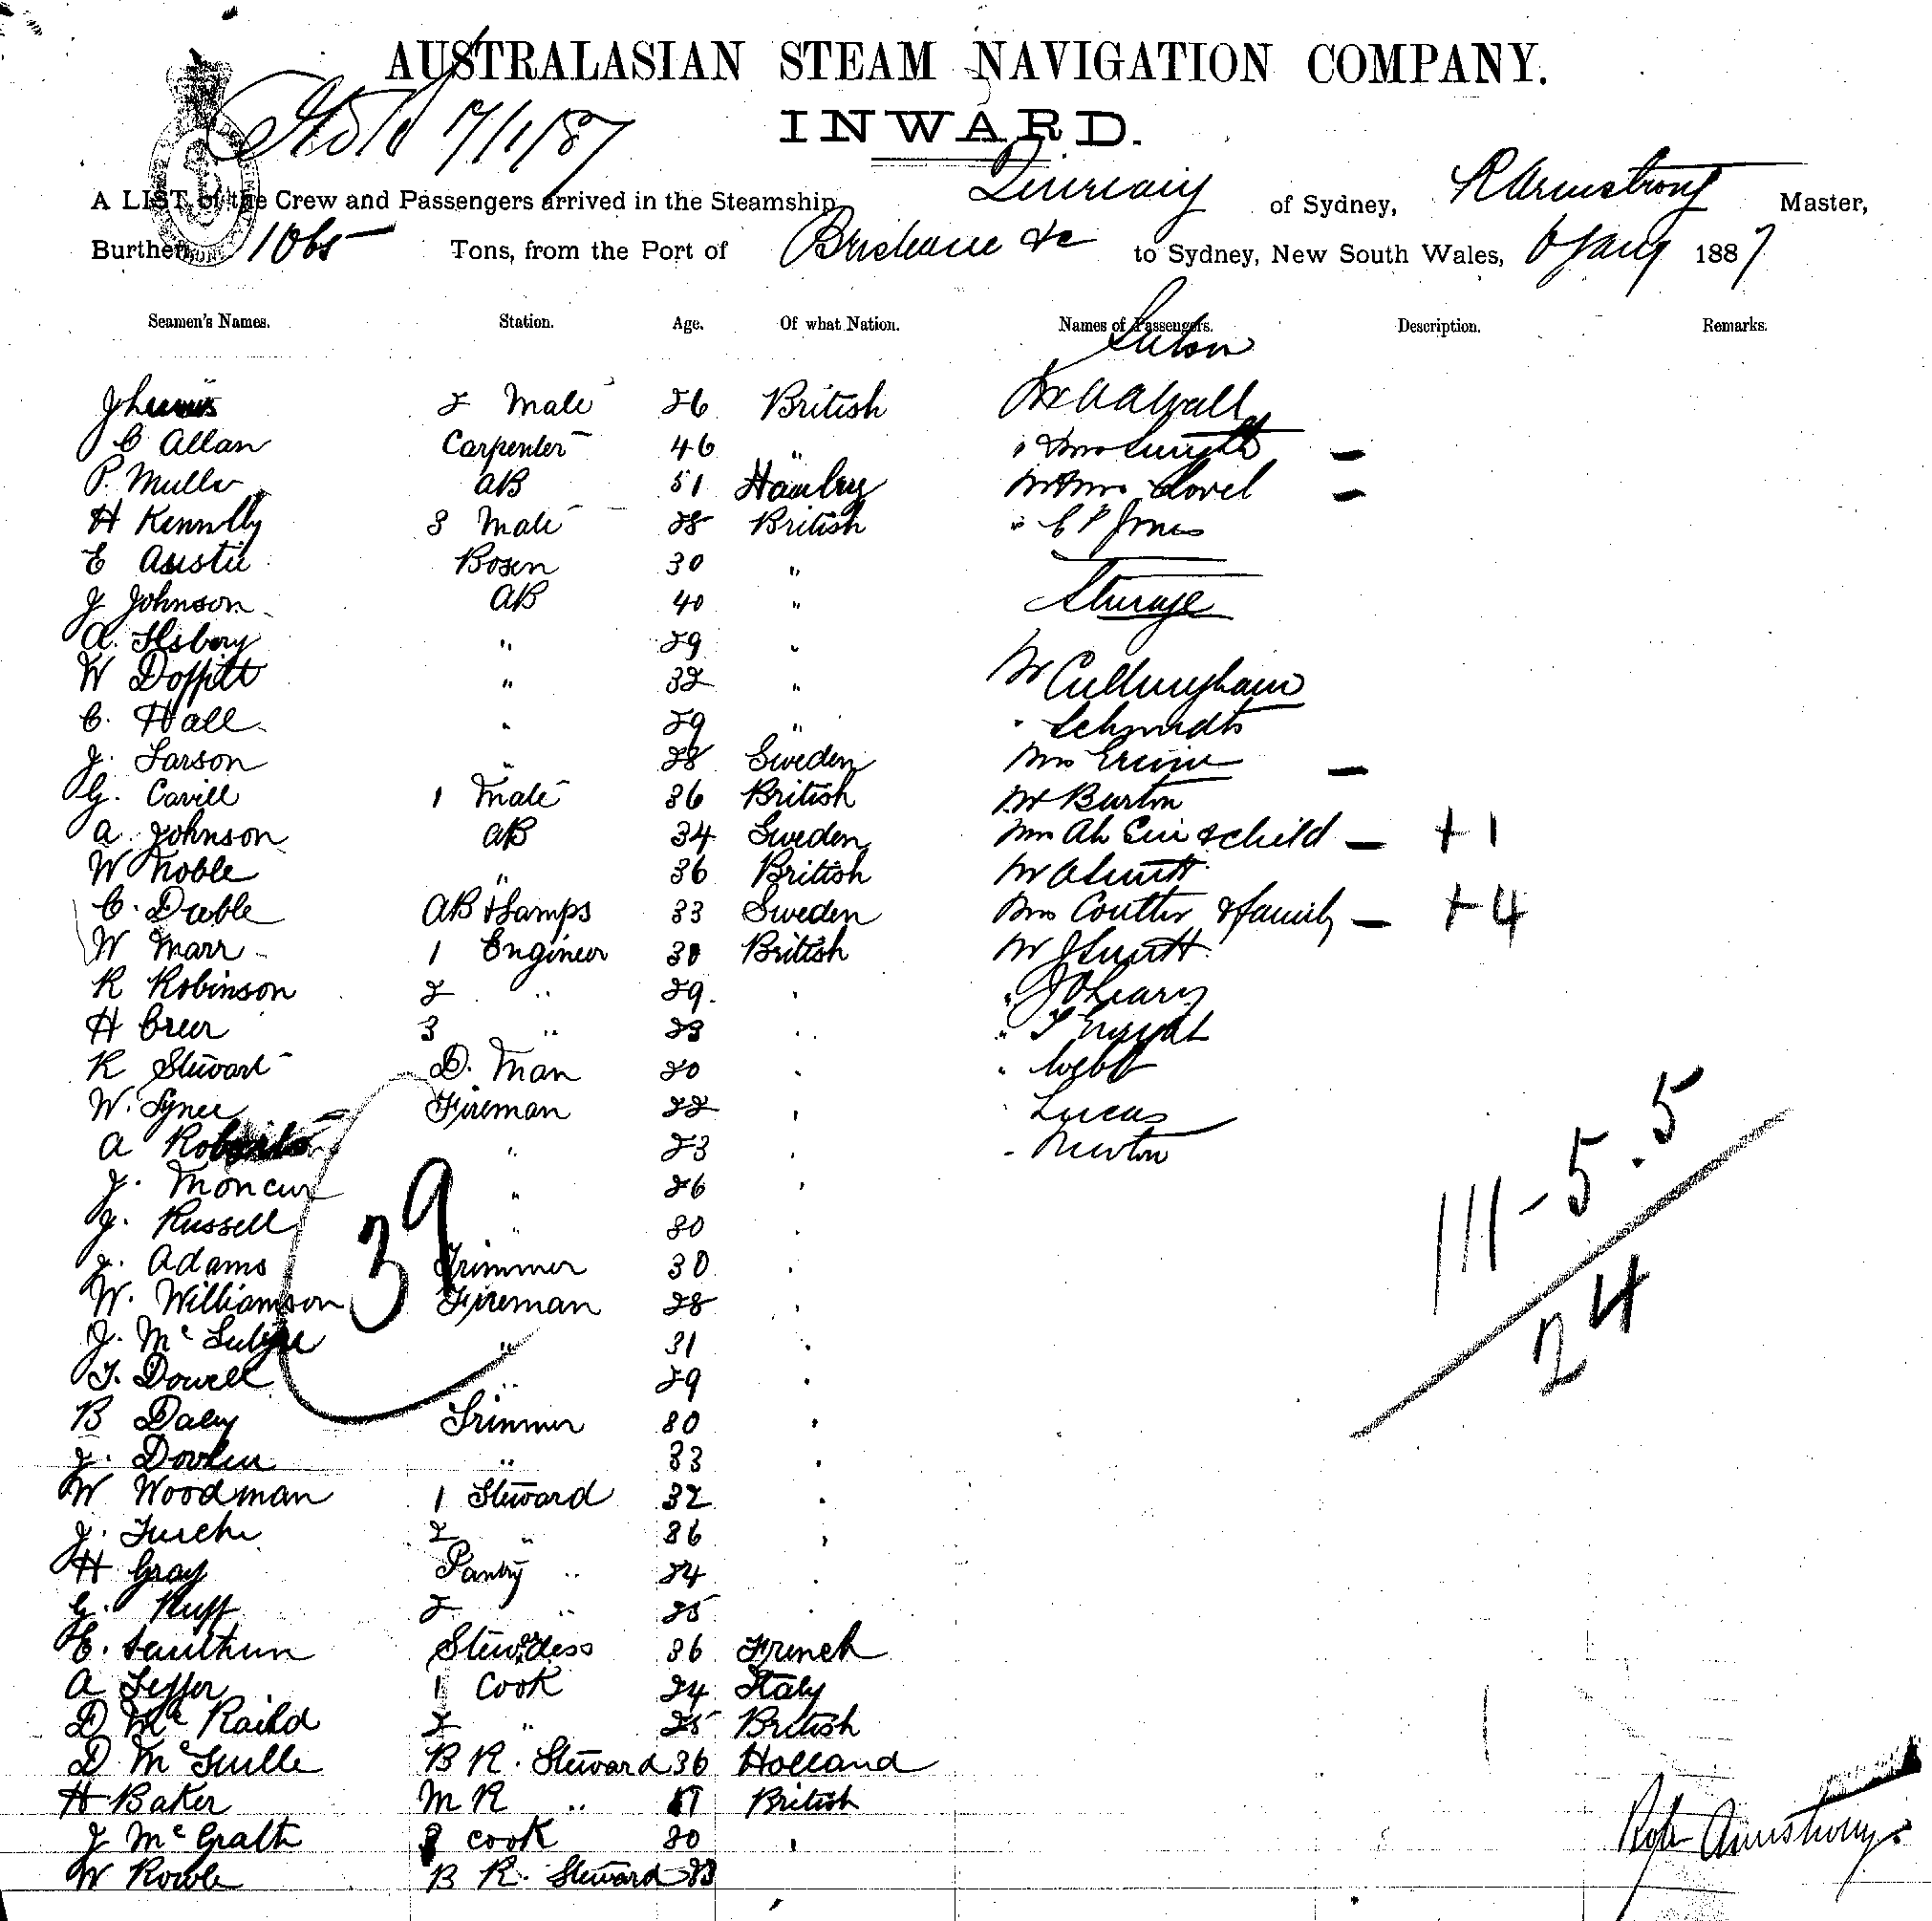 AUSTRALASIAN STEAM NAVIGATION COMPANY.
INWARD.
7/1/87
A LIST of the Crew and Passengers arrived in the Steamship of Sydney, R Armstrong Master,
Burthen 1065 Tons, from the Port of Brisbane &c to Sydney, New South Wales, 6 Jany 1887
Seamen's Names. Station. Age. Of what Nation. Names of Passengers. Description. Remarks.
Saloon
2 Mate 26 British
C Allan Carpenter 46 " " & Mrs Smyth –
P. Muller AB 51 –
H Kennlly 3 Mate 28 British " C P Jones
E Austie Bosen 30 "
J Johnson AB 40 " Steerage
A. " 29 "
W " 32 " Mr Cullingham
C. Hall " 29 " " Schmidt
J. Larson " 28 Sweden Mrs –
G. Cavill 1 Mate 36 British Mr Burton
A. Johnson AB 34 Sweden Mrs Ah & child – + 1
W Noble " 36 British Mr A Smith
C. AB & Lamps 33 Sweden Mrs Coulter & family – + 4
W Marr 1 Engineer 30 British Mr J Smith
R Robinson 2 " 29 " " J O'Leary
H Greer 3 " 23 "
R Stewart D. Man 20 " " Webb
W. Fireman 22 " Lucas
A Roberts " 23 " Newton
J. Moncur " 26 "
J. Russell " 30 "
J. Adams Trimmer 30 "
W. Williamson Fireman 28 "
39
J. " 31 "
T. Dowell " 29 "
111 - 5 . 5
24
B Daley Trimmer 30 "
J. " 33 "
W Woodman 1 Steward 32 "
J. 2 " 36 "
H Gray Pantry " 24 "
G. Ruff 2 " 25 "
E. Stewardess 36 French
A 1 Cook 24 Italy
D Mc Raild 2 " 25 British
D B R. Steward 36 Holland
H Baker M R " British
J McGrath 3 Cook 20 "
W Rowle B R. Steward 23
Robt Armstrong